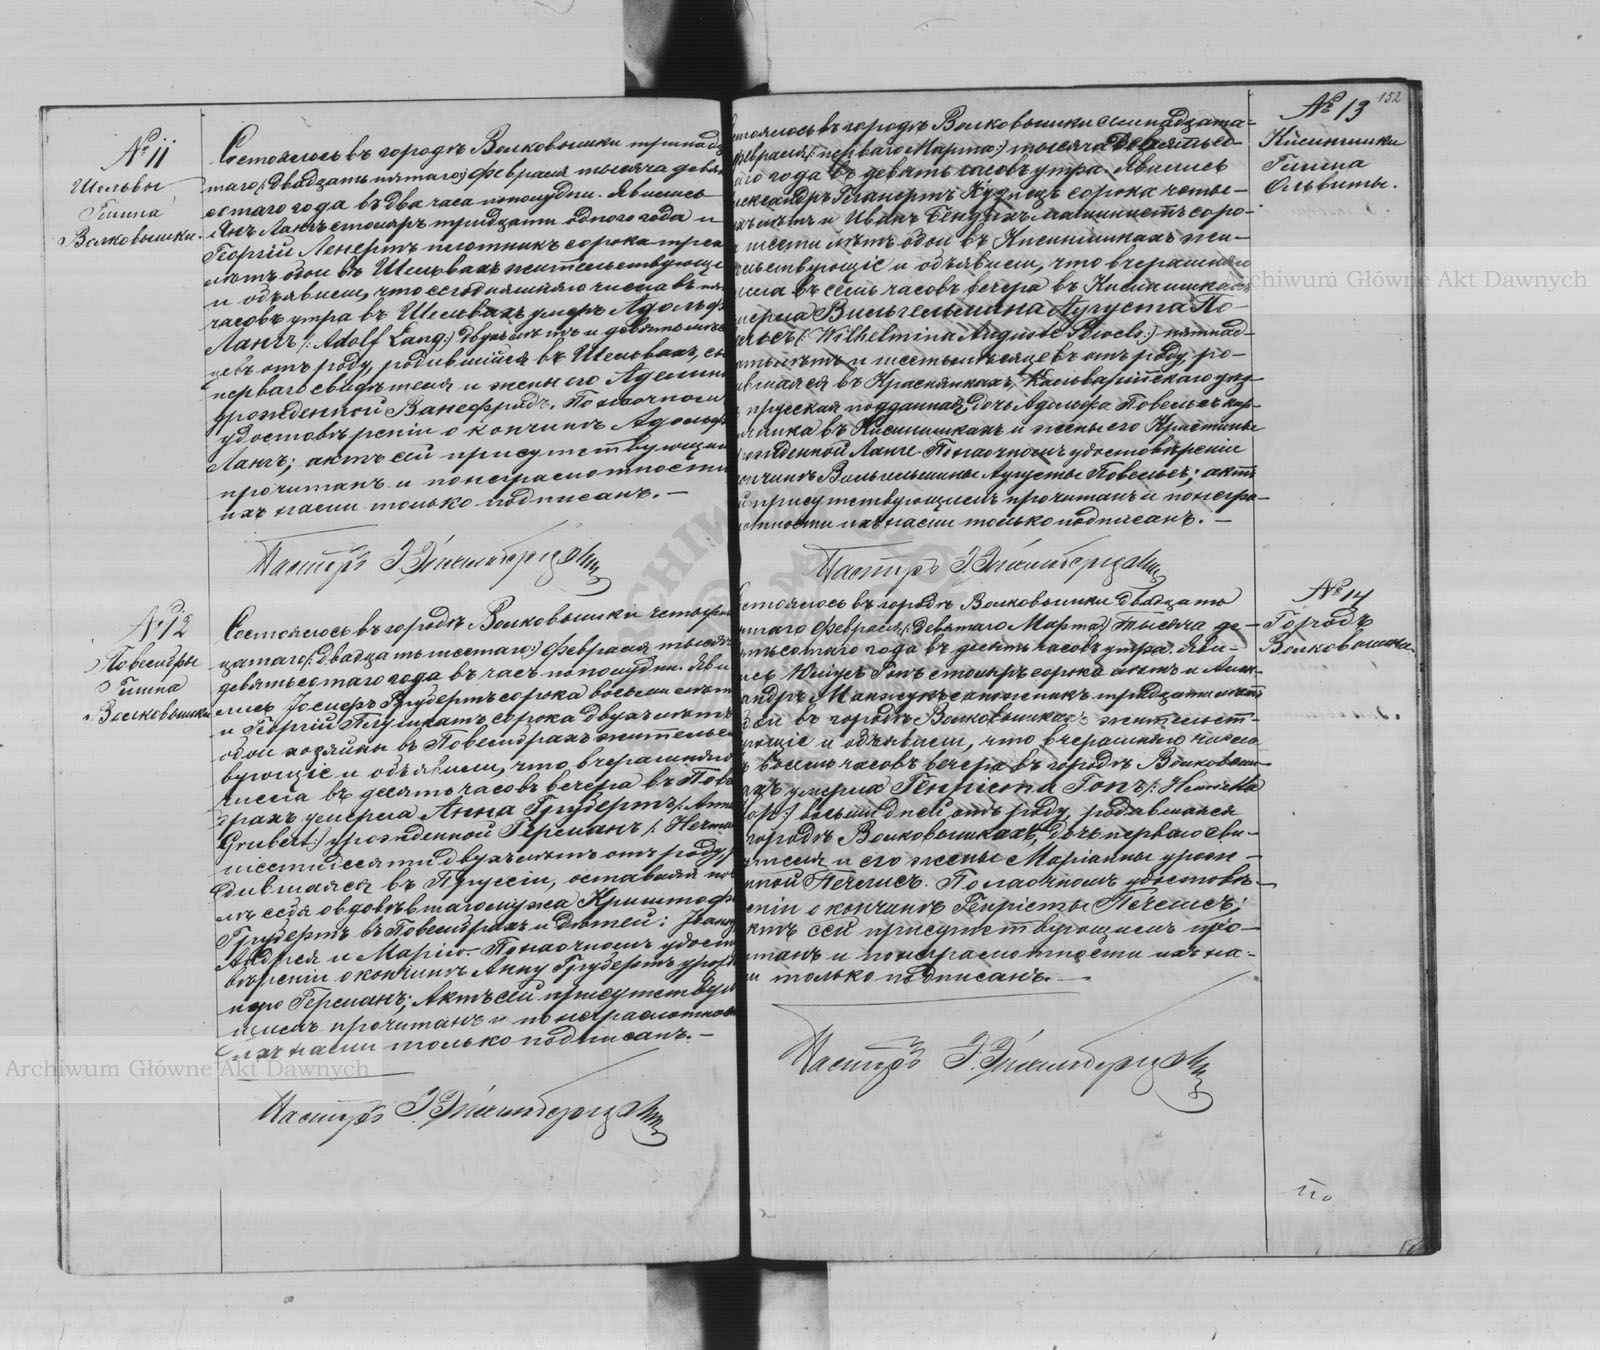 № 11
Шельвы
Гмина
Волковышки.
Состоялось въ городѣ Волковышки тринад
таго (: двадцать пятаго :) Февраля тысяча девять
сотаго года въ два часа пополудни. Явились
Янъ Лангъ столяръ тридцати одного года и
Георгій Ленертъ плотникъ сорока трехъ
лѣтъ оба въ Шельвахъ жительствующіе
и объявили, что сегодняшняго числа въ
часовъ утра въ Шельвахъ умеръ Адольфъ
Лангъ (: Adolf Lang :) двухъ лѣтъ и девять мѣся
цевъ отъ роду, родившійся въ Шельвахъ, сынъ
перваго свидѣтеля и жены его Аделины
урожденной Ванефридъ. По наочномъ
удостовѣреніи о кончинѣ Адольфа
Лангъ; актъ сей присутствующимъ
прочитанъ и по неграмотности
ихъ нами только подписанъ. —
Пастыръ
№ 12
Повемдры
Гмина
Волковышки
Состоялось въ городѣ Волковышки четыр
цатаго (: двадцать шестаго :) Февраля тысяча
девятьсотаго года въ часъ пополудни. Яви
лись Іосифъ Грубертъ сорока восьми лѣтъ
и Георгій сорока двухъ лѣтъ
оба хозяины въ Повемдрахъ жительс
вующіе и объявили, что вчерашняго
числа въ десять часовъ вечера въ Пове
драхъ умерла Анна Грубертъ (: Anna
Grubert :) урожденной Германъ (: Herma
шестидесяти двухъ лѣтъ отъ роду,
дившаяся въ Пруссіи, оставляя по
лѣ себя овдовѣвшаго мужа Криштофа
Грубертъ въ Повемдрахъ и дѣтей:
Андрея и Марію. По наочномъ удосто
вѣреніи о кончинѣ Анны Грубертъ урож
Германъ; Актъ сей присутствую
щимъ прочитанъ и по неграмотности
ихъ нами только подписанъ. —
Пастыръ
152
№ 13
Кисинишки
Гмина
Ольвиты.
стоялось въ городѣ Волковышки семнадцата-
Февраля (: перваго Марта :) тысяча девятьсо-
аго года въ девять часовъ утра. Явились
лександръ кузнецъ сорока четы-
лѣтъ и Иванъ Бендихъ машинистъ соро-
шести лѣтъ оба въ Кисинишкахъ жи-
льствующіе и объявили, что вчерашняго
исла въ семь часовъ вечера въ Кисинишкахъ
мерла Вильгельмина Августа По-
(: Wilhelmina Auguste :) пятнад-
лѣтъ и шесть мѣсяцевъ отъ роду, ро-
вшаяся въ Краснянкахъ, Кальварійскаго уѣз-
прусская подданная, дочь Адольфа
въ Кисинишкахъ и жены его Кристины
рожденной Ланге. По наочномъ удостовѣреніи
ончинѣ Вильгельмины Августы; актъ
присутствующимъ прочитанъ и по негра-
отности ихъ нами только подписанъ. —
Пастыръ
№ 14
Городъ
Волковышки.
стоялось въ городѣ Волковышки двадцать
Февраля (: девятаго Марта :) тысяча де-
ятьсотаго года въ десять часовъ утра. Яви-
ись Гопъ столяръ сорока лѣтъ и Алек-
андръ сапожникъ тридцати лѣтъ
ба въ городѣ Волковышкахъ жительст-
ующіе и объявили, что вчерашняго числа
въ восемь часовъ вечера въ городѣ Волковыш-
ахъ умерла Генріета Гопъ (: Henrietta
восьми дней отъ роду, родившаяся
городѣ Волковышкахъ, дочь перваго сви-
ѣтеля и его жены Маріанны урож-
нной Печелисъ. По наочномъ удостовѣ-
еніи о кончинѣ Генріеты Печелисъ;
ктъ сей присутствующимъ про-
танъ и по неграмотности ихъ на-
и только подписанъ. —
Пастыръ
Archiwum Główne Akt Dawnych
Archiwum Główne Akt Dawnych